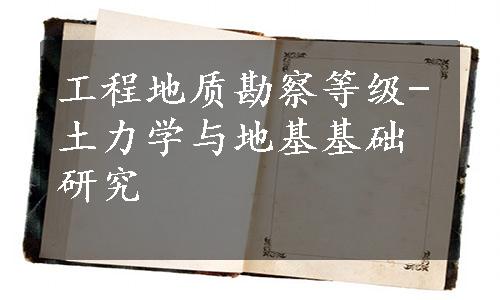 工程地质勘察等级-
土力学与地基基础
研究